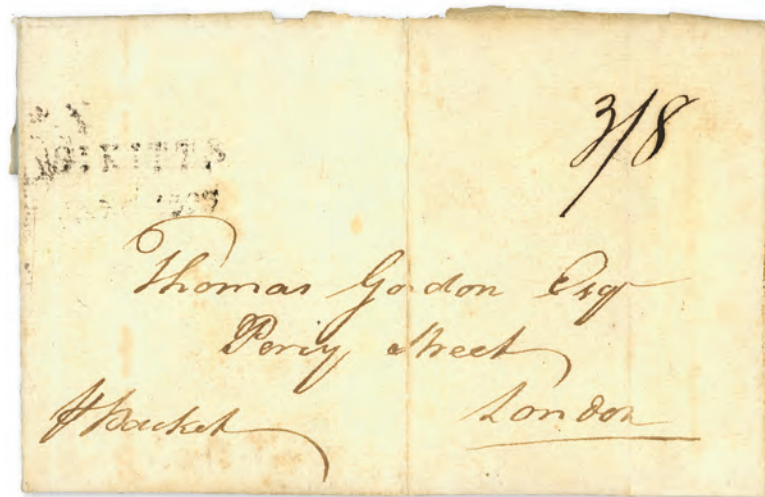 3/8
St KITTS
Thomas Gordon Esqr
Percy Street
London
Packet